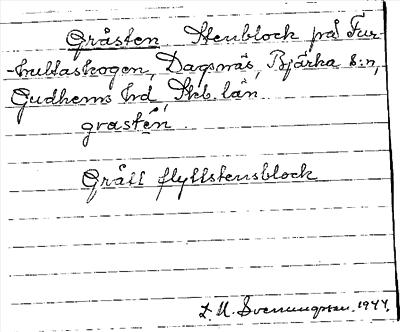 Gråsten Stenblock på Fur-
-hultaskogen, Dagsnäs, Bjärka s:n,
Gudhems hd, Skb. län.
grastén.
Grått flyttstensblock
L. M. Svenungsson. 1944.